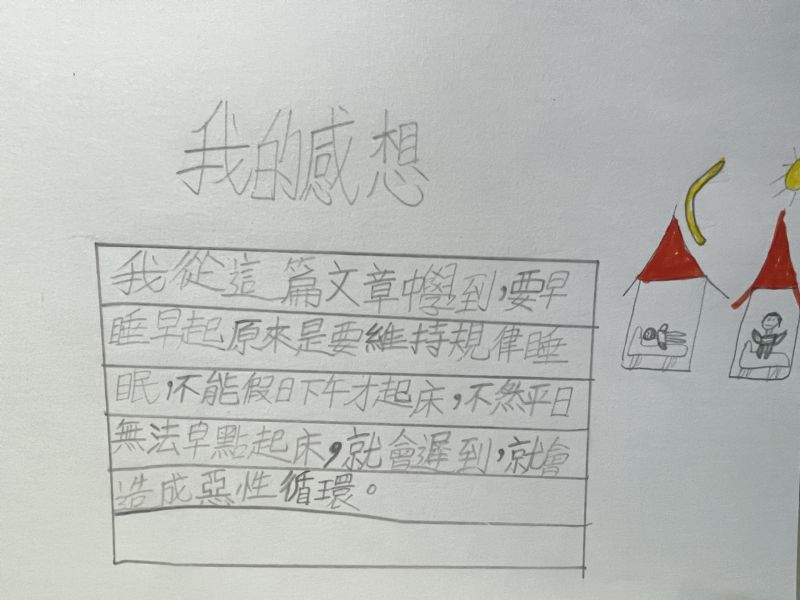 我的感想
我從這篇文章中學到，要早
睡早起原來是要維持規律睡
眠，不能假日下午才起床，不然平日
無法早點起床，就會遲到，就會
造成惡性循環。